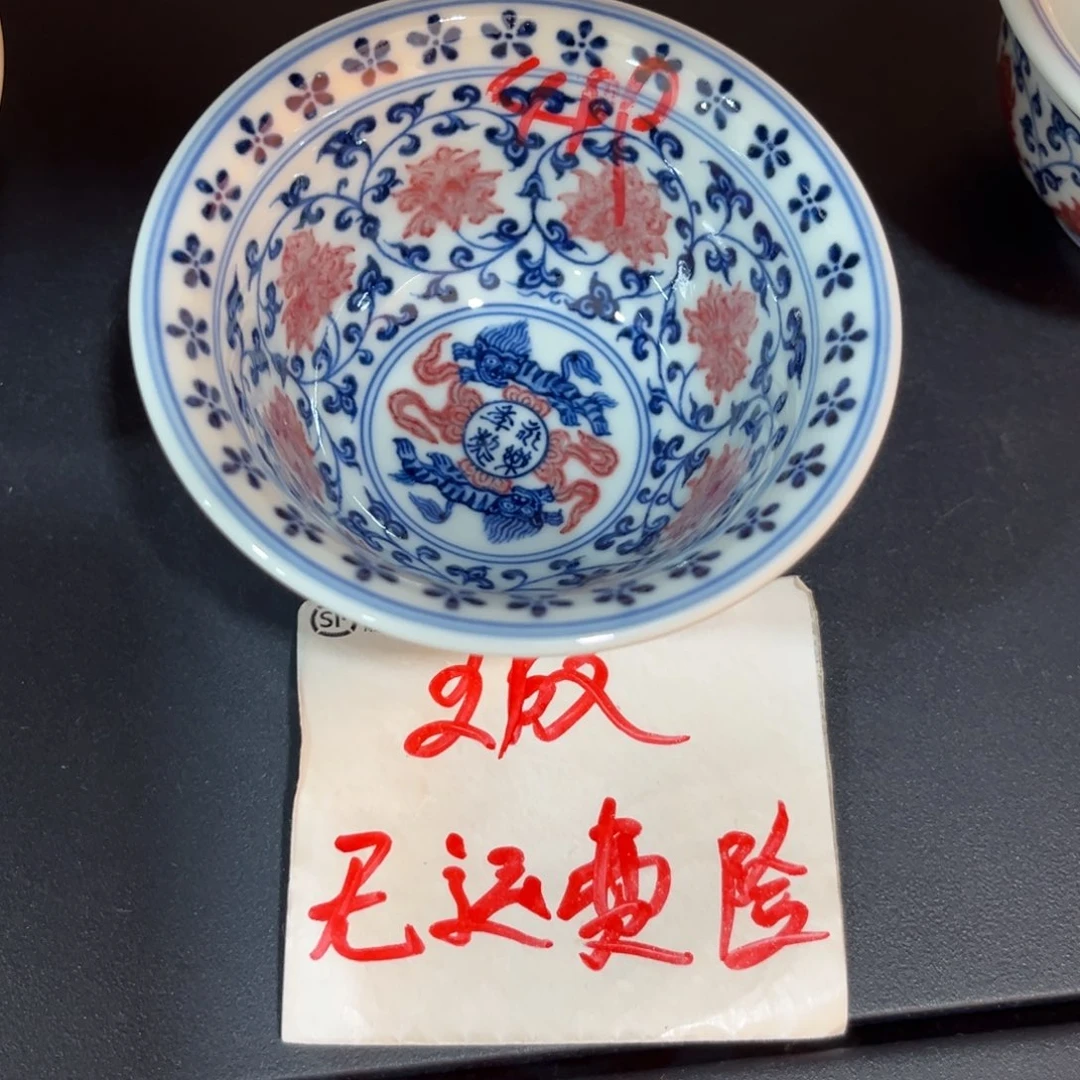 永樂
年製
SF
2版
无运费险